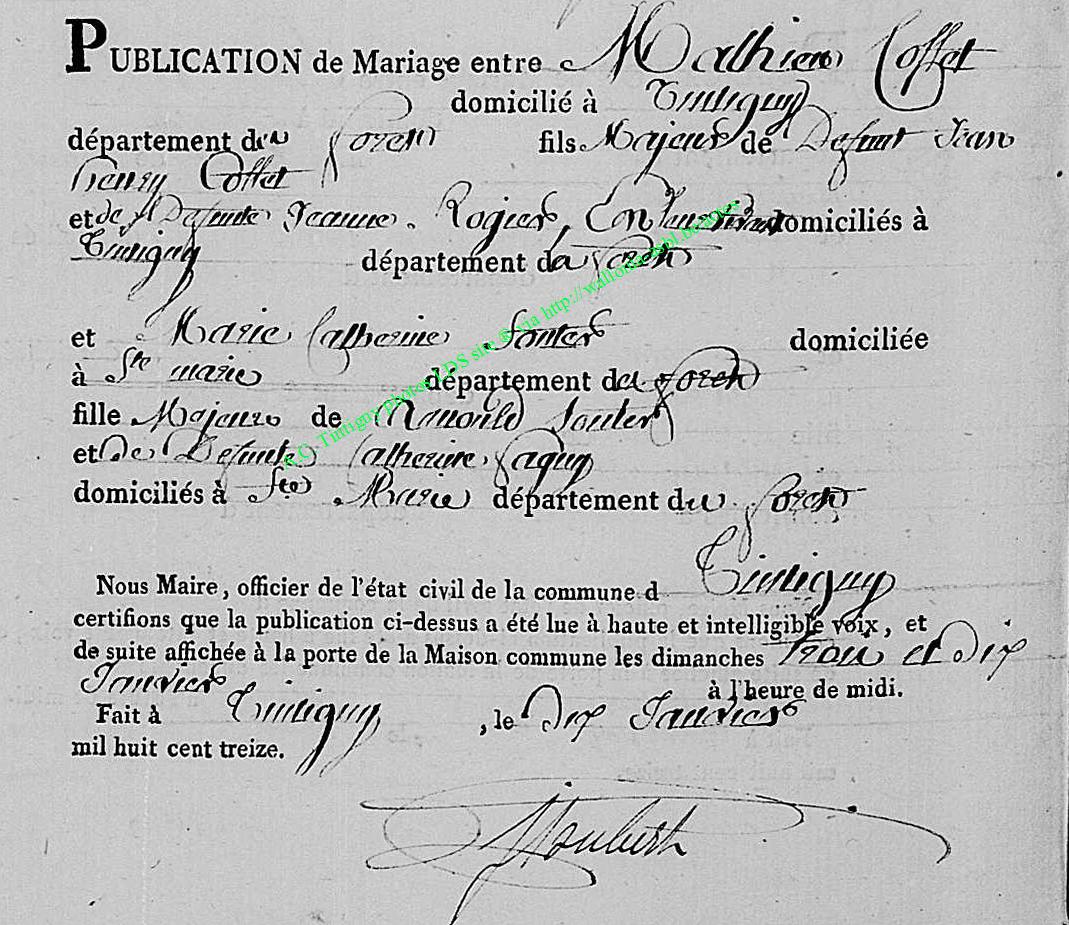 PUBLICATION de Mariage entre Mathieu Coffet
domicilié à Tintigny
département des foret fils Majeur de Defunt Jean
henry Coffet
et de Defunte Jeanne Rogier, domiciliés à
Tintigny département de foret
et Marie Catherine domiciliée
à Ste marie département des foret
fille Majeure de
et De Defunte Catherine
domiciliés à Ste Marie département du foret
Nous Maire, officier de l'état civil de la commune d Tintigny
certifions que la publication ci-dessus a été lue à haute et intelligible voix, et
de suite affichée à la porte de la Maison commune les dimanches Trois et Dix
Janvier à l'heure de midi.
Fait à Tintigny, le Dix Janvier
mil huit cent treize.
A.C. Tintigny photos LDS site © via